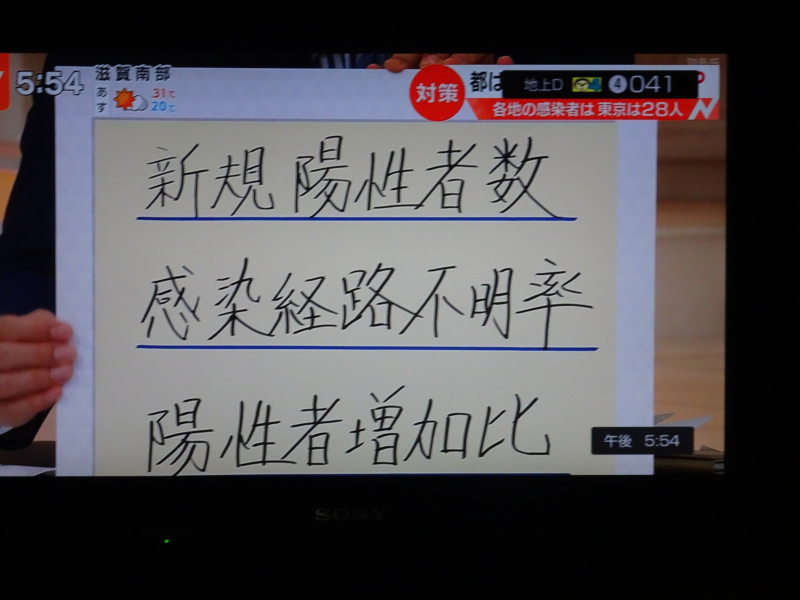 5:54
滋賀南部
あす 31℃ 20℃
対策
都は
地上D 4 041
各地の感染者は 東京は28人 N
新規陽性者数
感染経路不明率
陽性者増加比
午後 5:54
SONY